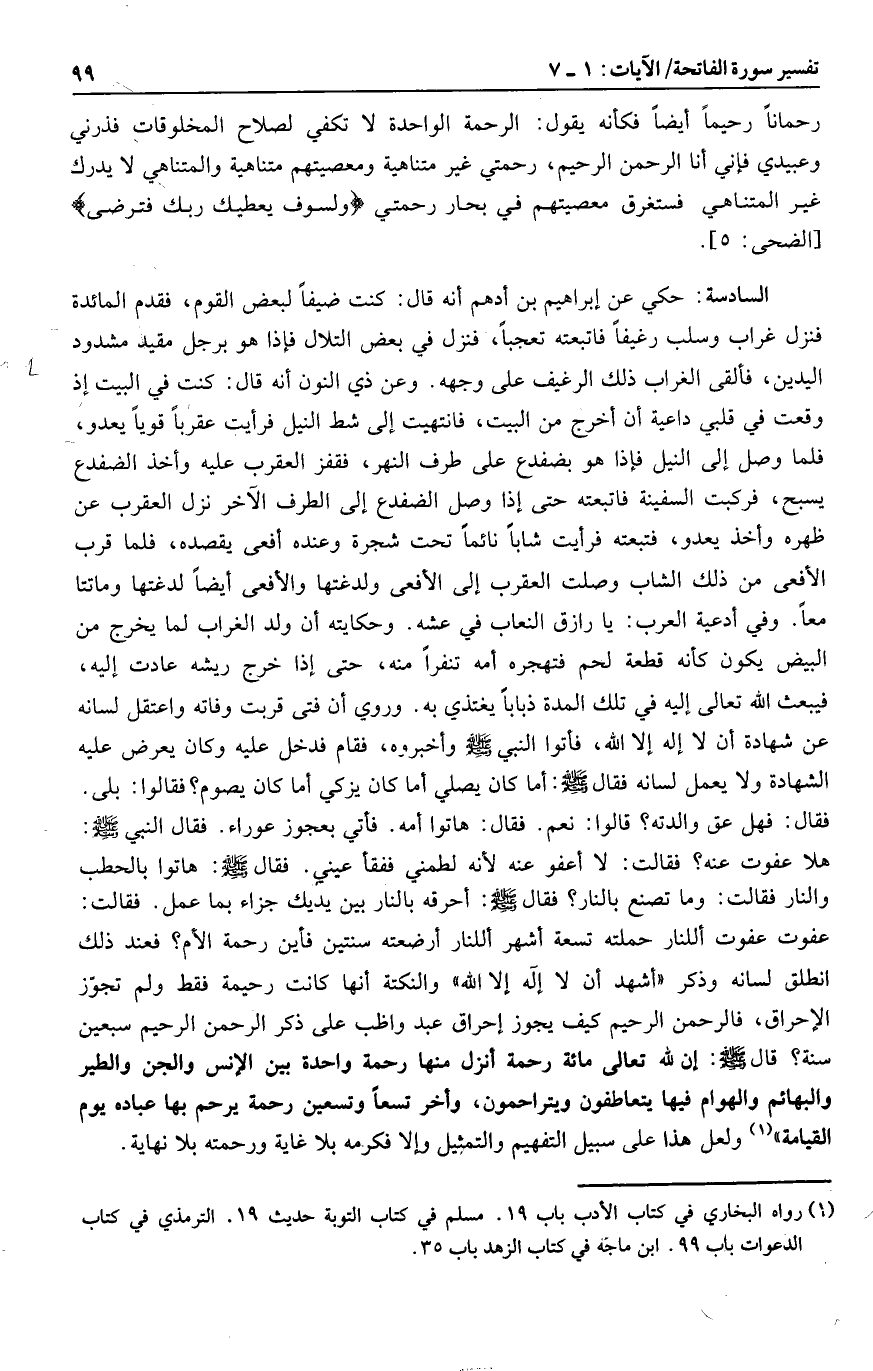 تفسير سورة الفاتحة/ الآيات: ١ ـ ٧ ٩٩
رحماناً رحيماً أيضاً فكأنه يقول: الرحمة الواحدة لا تكفي لصلاح المخلوقات فذرني
وعبيدي فإني أنا الرحمن الرحيم، رحمتي غير متناهية ومعصيتهم متناهية والمتناهي لا يدرك
غير المتناهي فستغرق معصيتهم في بحار رحمتي ﴿ولسوف يعطيك ربك فترضى﴾
[الضحى: ٥].
السادسة: حكي عن إبراهيم بن أدهم أنه قال: كنت ضيفاً لبعض القوم، فقدم المائدة
فنزل غراب وسلب رغيفاً فاتبعته تعجباً، فنزل في بعض التلال فإذا هو برجل مقيد مشدود
اليدين، فألقى الغراب ذلك الرغيف على وجهه. وعن ذي النون أنه قال: كنت في البيت إذ
وقعت في قلبي داعية أن أخرج من البيت، فانتهيت إلى شط النيل فرأيت عقرباً قوياً يعدو،
فلما وصل إلى النيل فإذا هو بضفدع على طرف النهر، فقفز العقرب عليه وأخذ الضفدع
يسبح، فركبت السفينة فاتبعته حتى إذا وصل الضفدع إلى الطرف الآخر نزل العقرب عن
ظهره وأخذ يعدو، فتبعته فرأيت شاباً نائماً تحت شجرة وعنده أفعى يقصده، فلما قرب
الأفعى من ذلك الشاب وصلت العقرب إلى الأفعى ولدغتها والأفعى أيضاً لدغتها وماتتا
معاً. وفي أدعية العرب: يا رازق النعاب في عشه. وحكايته أن ولد الغراب لما يخرج من
البيض يكون كأنه قطعة لحم فتهجره أمه تنفراً منه، حتى إذا خرج ريشه عادت إليه،
فيبعث الله تعالى إليه في تلك المدة ذباباً يغتذي به. وروي أن فتى قربت وفاته واعتقل لسانه
عن شهادة أن لا إله إلا الله، فأتوا النبي ﷺ وأخبروه، فقام فدخل عليه وكان يعرض عليه
الشهادة ولا يعمل لسانه فقال ﷺ: أما كان يصلي أما كان يزكي أما كان يصوم؟ فقالوا: بلى.
فقال: فهل عق والدته؟ قالوا: نعم. فقال: هاتوا أمه. فأتي بعجوز عوراء. فقال النبي ﷺ:
هلا عفوت عنه؟ فقالت: لا أعفو عنه لأنه لطمني ففقأ عيني. فقال ﷺ: هاتوا بالحطب
والنار فقالت: وما تصنع بالنار؟ فقال ﷺ: أحرقه بالنار بين يديك جزاء بما عمل. فقالت:
عفوت عفوت أللنار حملته تسعة أشهر أللنار أرضعته سنتين فأين رحمة الأم؟ فعند ذلك
انطلق لسانه وذكر «أشهد أن لا إلَه إلا الله» والنكتة أنها كانت رحيمة فقط ولم تجوّز
الإحراق، فالرحمن الرحيم كيف يجوز إحراق عبد واظب على ذكر الرحمن الرحيم سبعين
سنة؟ قال ﷺ: إن لله تعالى مائة رحمة أنزل منها رحمة واحدة بين الإنس والجن والطير
والبهائم والهوام فيها يتعاطفون ويتراحمون، وأخر تسعاً وتسعين رحمة يرحم بها عباده يوم
القيامة»(١) ولعل هذا على سبيل التفهيم والتمثيل وإلا فكرمه بلا غاية ورحمته بلا نهاية.
(١) رواه البخاري في كتاب الأدب باب ١٩. مسلم في كتاب التوبة حديث ١٩. الترمذي في كتاب
الدعوات باب ٩٩. ابن ماجَه في كتاب الزهد باب ٣٥.